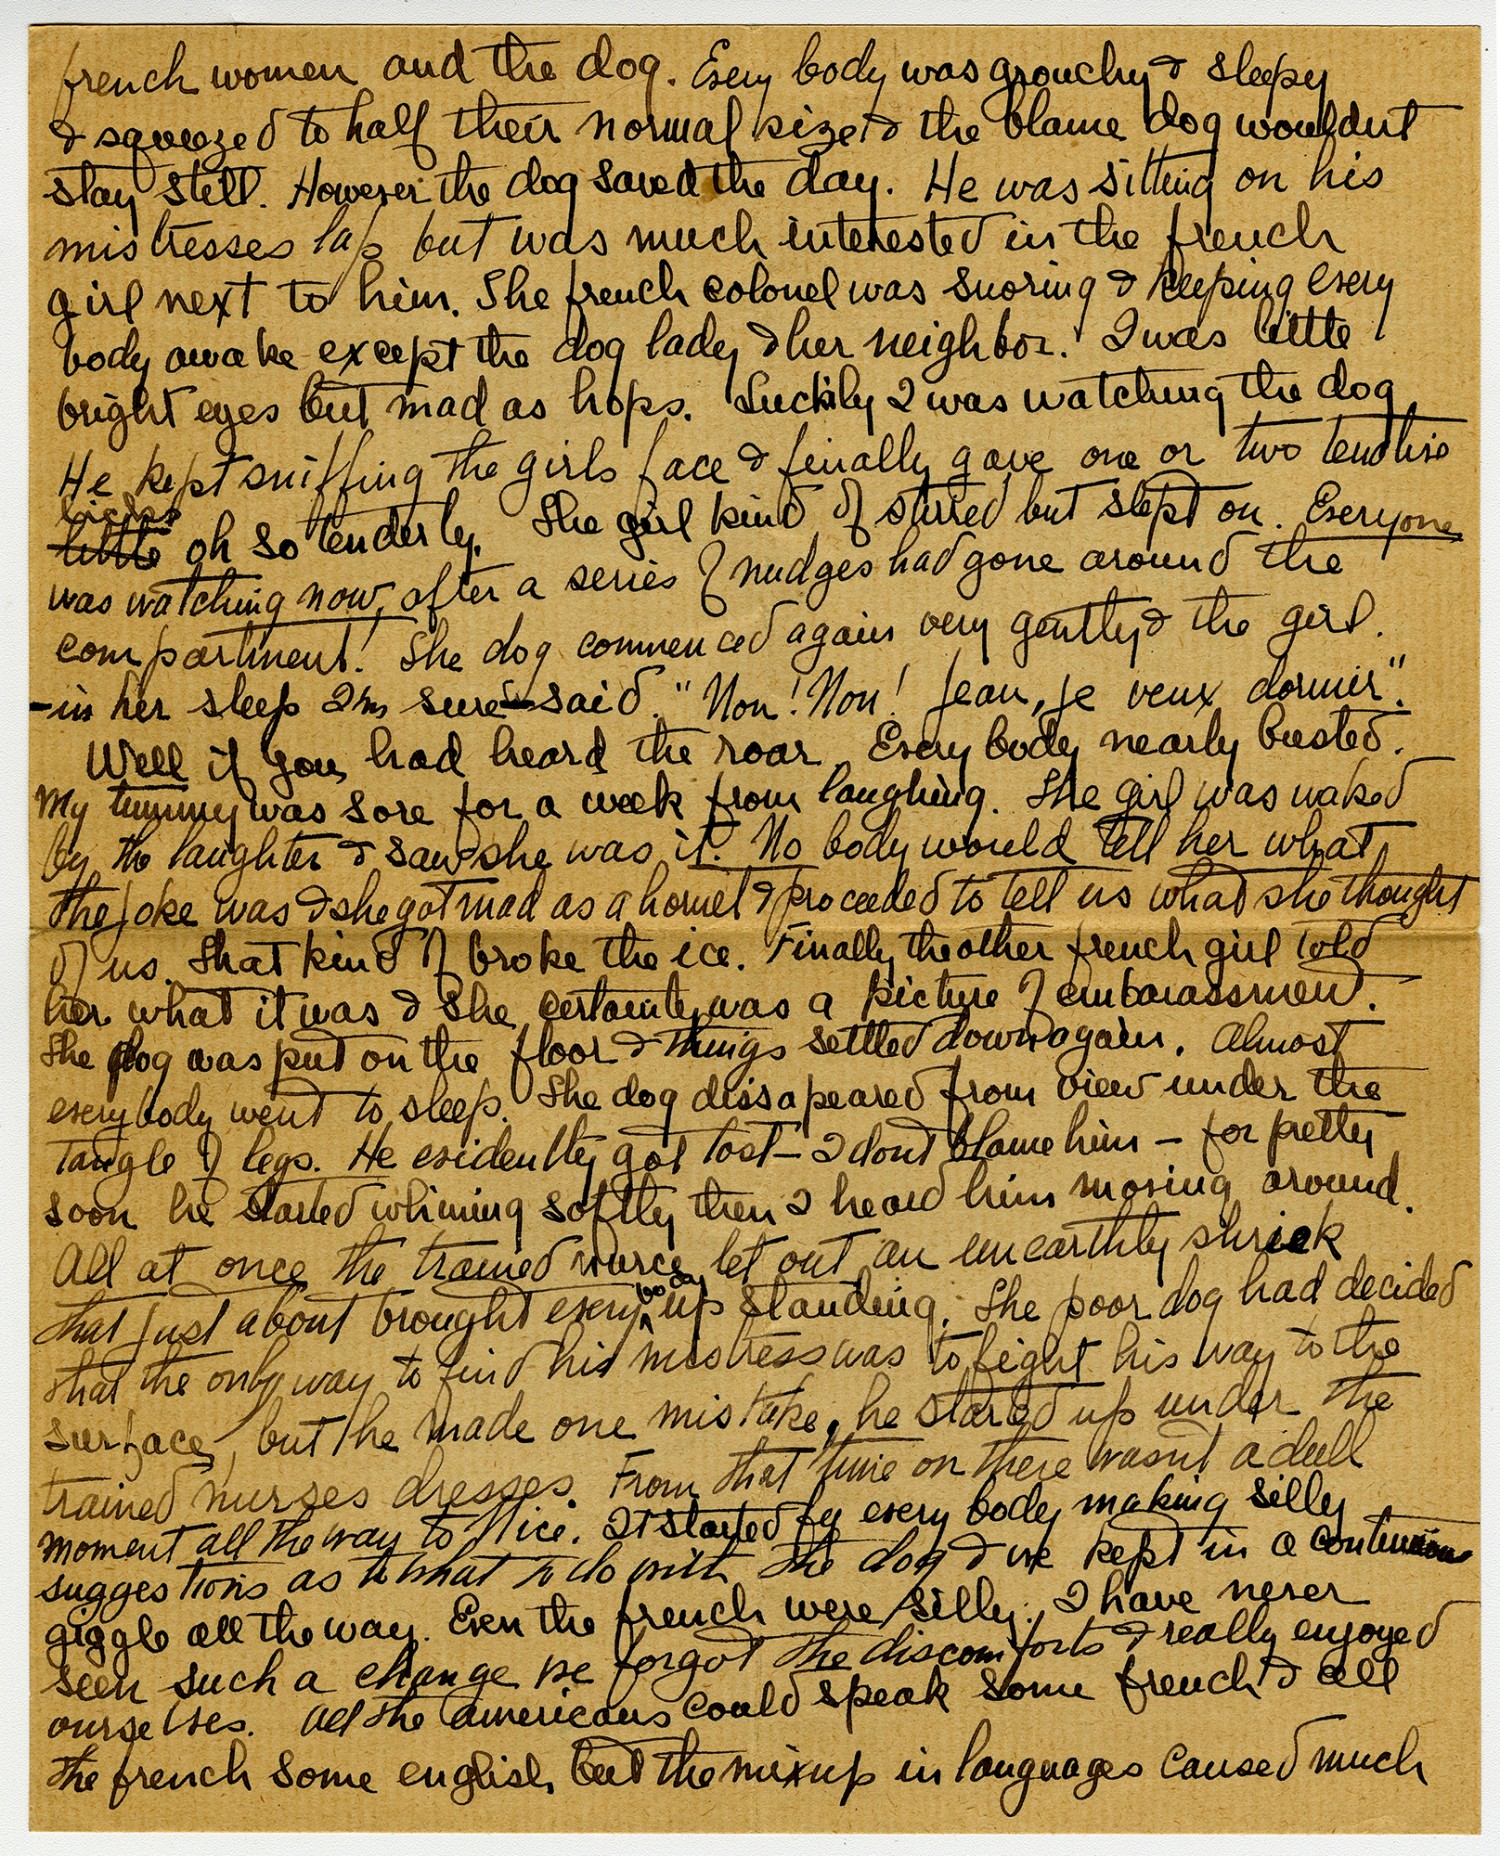 french women and the dog. Every body was grouchy & sleepy
& squeezed to half their normal size & the blame dog wouldnt
stay still. However the dog saved the day. He was sitting on his
mistresses lap but was much interested in the french
girl next to him. The french colonel was snoring & keeping every
body awake except the dog lady & her neighbor. I was little
bright eyes but mad as hops. Luckily I was watching the dog
He kept sniffing the girls face & finally gave one or two tentive
licks
little oh so tenderly. The girl kind of stirred but slept on. Everyone
was watching now, after a series of nudges had gone around the
compartment! The dog commenced again very gently & the girl.
-in her sleep I'm sure- said "Non! Non! Jean, je veux dormir".
Well if you had heard the roar. Every body nearly busted.
My tummy was sore for a week from laughing. The girl was waked
by the laughter & saw she was it. No body would tell her what
the joke was & she got mad as a hornet & proceeded to tell us what she thought
of us. That kind of broke the ice. Finally the other french girl told
her what it was & she certainly was a picture of embarassment.
The dog was put on the floor & things settled down again. Almost
everybody went to sleep. The dog dissapeared from view under the
tangle of legs. He evidently got lost - I dont blame him - for pretty
soon he started whining softly then I heard him moving around.
All at once the trained nurse let out an unearthly shriek
that just about brought every body up standing. The poor dog had decided
that the only way to find his mistress was to fight his way to the
surface, but he made one mistake, he started up under the
trained nurses dresses. From that time on there wasnt a dull
moment all the way to Nice. It started by every body making silly
suggestions as to what to do with the dog & we kept in a continuous
giggle all the way. Even the french were silly. I have never
seen such a change we forgot the discomforts & really enjoyed
ourselves. All the americans could speak some french & all
the french some english but the mixup in languages caused much